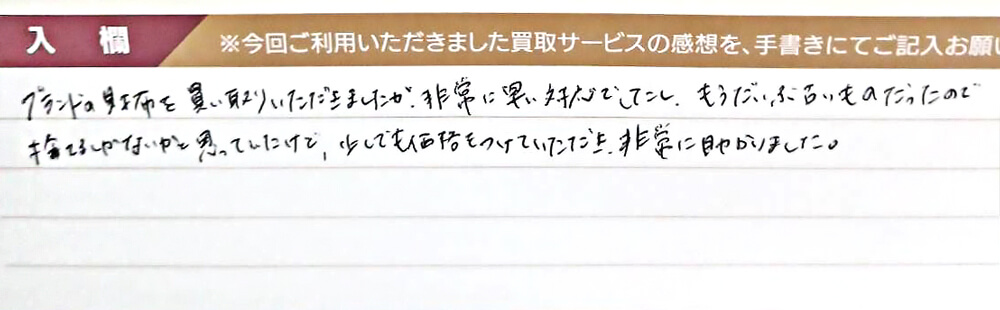 入 欄
※今回ご利用いただきました買取サービスの感想を、手書きにてご記入お願い
ブランドの財布を買い取りいただきましたが、非常に早い対応でしたし、もうだいぶ古いものだったので
捨てるしかないかと思っていたけど、少しでも価格をつけていただき、非常に助かりました。